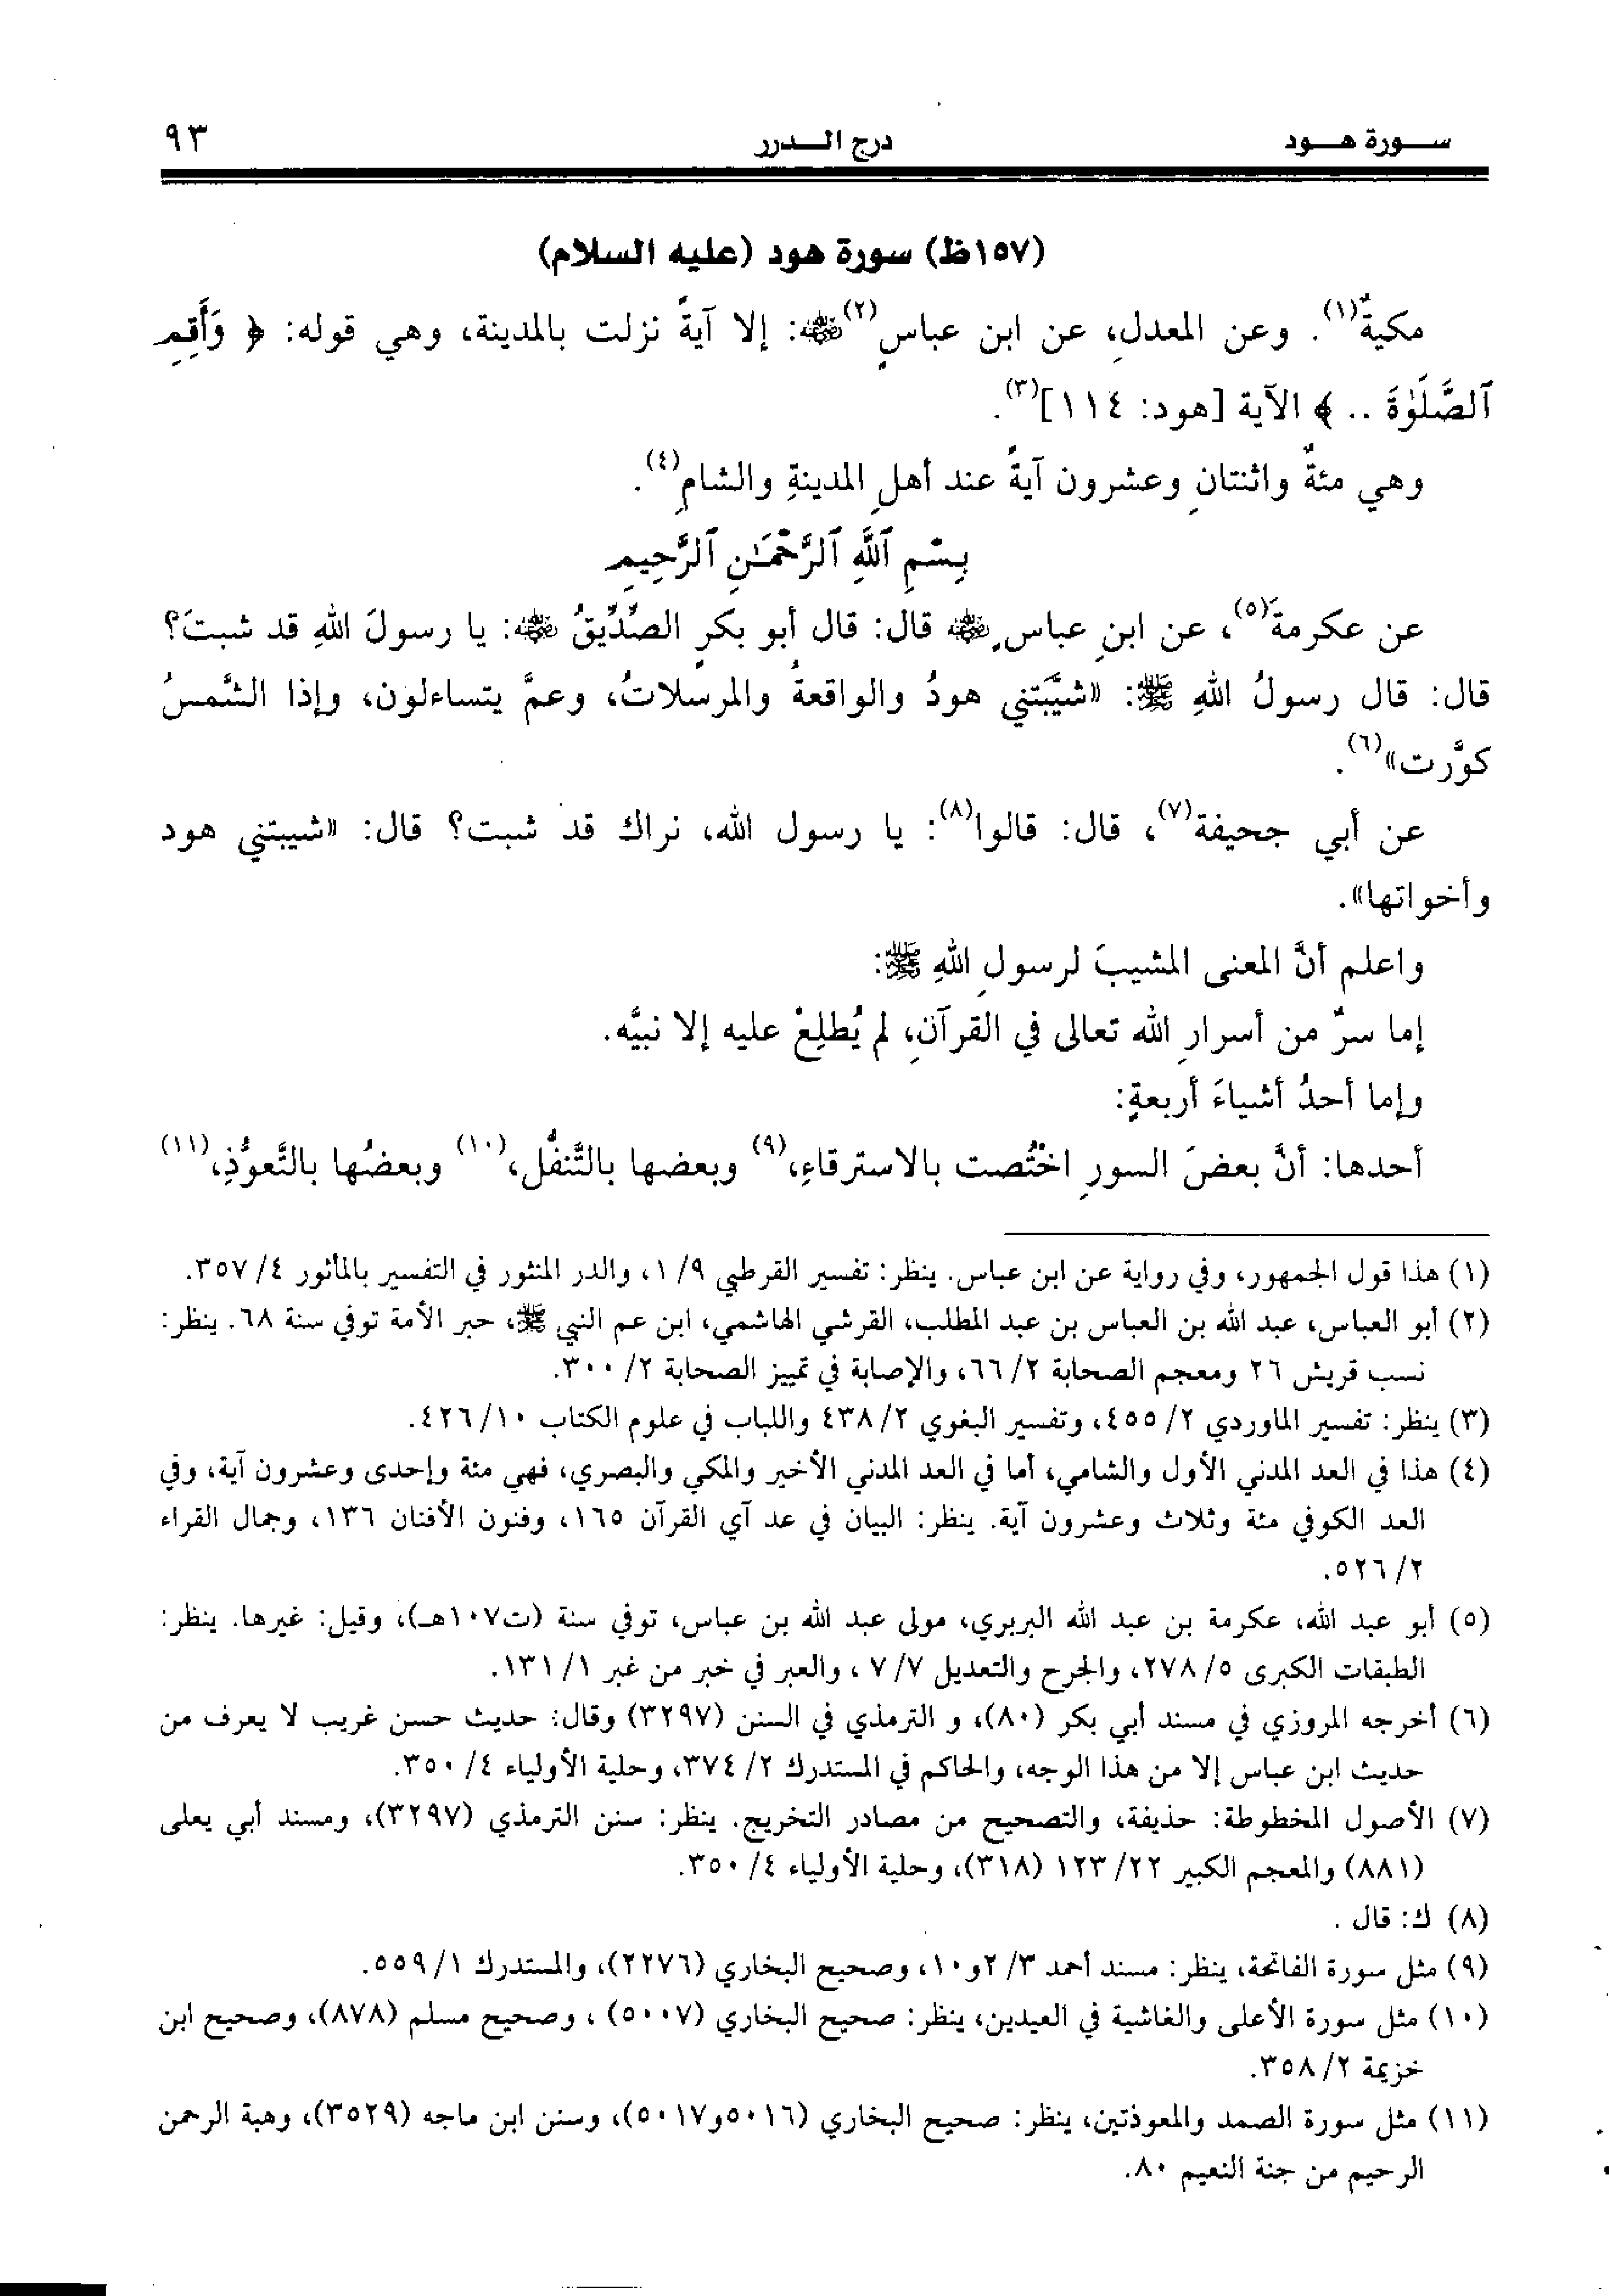 سـورة هـود درج الـدرر ٩٣
(١٥٧ظ) سورة هود (عليه السلام)
مكيةٌ(١). وعن المعدلِ، عن ابن عباسٍ(٢)﵁: إلا آيةً نزلت بالمدينة، وهي قوله: ﴿ وَأَقِمِ
ٱلصَّلَوٰةَ .. ﴾ الآية [هود: ١١٤](٣).
وهي مئةٌ واثنتانِ وعشرون آيةً عند أهلِ المدينةِ والشامِ(٤).
بِسْمِ ٱللَّهِ ٱلرَّحْمَٰنِ ٱلرَّحِيمِ
عن عكرمةَ(٥)، عن ابنِ عباسٍ﵁ قال: قال أبو بكرٍ الصِّدِّيقُ ﵁: يا رسولَ اللهِ قد شبتَ؟
قال: قال رسولُ اللهِ ﷺ: «شيَّبَتني هودُ والواقعةُ والمرسلاتُ، وعمَّ يتساءلون، وإذا الشَّمسُ
كوَّرت»(٦).
عن أبي جحيفة(٧)، قال: قالوا(٨): يا رسول الله، نراك قد شبت؟ قال: «شيبتني هود
وأخواتها».
واعلم أنَّ المعنى المشيبَ لرسولِ اللهِ ﷺ:
إما سرٌّ من أسرارِ الله تعالى في القرآنِ، لم يُطلِعْ عليه إلا نبيَّه.
وإما أحدُ أشياءَ أربعةٍ:
أحدها: أنَّ بعضَ السورِ اخْتُصت بالاسترقاءِ،(٩) وبعضها بالتَّنفُّل،(١٠) وبعضُها بالتَّعوُّذِ،(١١)
(١) هذا قول الجمهور، وفي رواية عن ابن عباس. ينظر: تفسير القرطبي ٩/ ١، والدر المنثور في التفسير بالمأثور ٤/ ٣٥٧.
(٢) أبو العباس، عبد الله بن العباس بن عبد المطلب، القرشي الهاشمي، ابن عم النبي ﷺ، حبر الأمة توفي سنة ٦٨. ينظر:
نسب قريش ٢٦ ومعجم الصحابة ٢/ ٦٦، والإصابة في تمييز الصحابة ٢/ ٣٠٠.
(٣) ينظر: تفسير الماوردي ٢/ ٤٥٥، وتفسير البغوي ٢/ ٤٣٨ واللباب في علوم الكتاب ١٠/ ٤٢٦.
(٤) هذا في العد المدني الأول والشامي، أما في العد المدني الأخير والمكي والبصري، فهي مئة وإحدى وعشرون آية، وفي
العد الكوفي مئة وثلاث وعشرون آية. ينظر: البيان في عد آي القرآن ١٦٥، وفنون الأفنان ١٣٦، وجمال القراء
٢/ ٥٢٦.
(٥) أبو عبد الله، عكرمة بن عبد الله البربري، مولى عبد الله بن عباس، توفي سنة (ت١٠٧هـ)، وقيل: غيرها. ينظر:
الطبقات الكبرى ٥/ ٢٧٨، والجرح والتعديل ٧/ ٧ ، والعبر في خبر من غبر ١/ ١٣١.
(٦) أخرجه المروزي في مسند أبي بكر (٨٠)، و الترمذي في السنن (٣٢٩٧) وقال: حديث حسن غريب لا يعرف من
حديث ابن عباس إلا من هذا الوجه، والحاكم في المستدرك ٢/ ٣٧٤، وحلية الأولياء ٤/ ٣٥٠.
(٧) الأصول المخطوطة: حذيفة، والتصحيح من مصادر التخريج. ينظر: سنن الترمذي (٣٢٩٧)، ومسند أبي يعلى
(٨٨١) والمعجم الكبير ٢٢/ ١٢٣ (٣١٨)، وحلية الأولياء ٤/ ٣٥٠.
(٨) ك: قال .
(٩) مثل سورة الفاتحة، ينظر: مسند أحمد ٣/ ٢و١٠، وصحيح البخاري (٢٢٧٦)، والمستدرك ١/ ٥٥٩.
(١٠) مثل سورة الأعلى والغاشية في العيدين، ينظر: صحيح البخاري (٥٠٠٧) ، وصحيح مسلم (٨٧٨)، وصحيح ابن
خزيمة ٢/ ٣٥٨.
(١١) مثل سورة الصمد والمعوذتين، ينظر: صحيح البخاري (٥٠١٦و٥٠١٧)، وسنن ابن ماجه (٣٥٢٩)، وهبة الرحمن
الرحيم من جنة النعيم ٨٠.